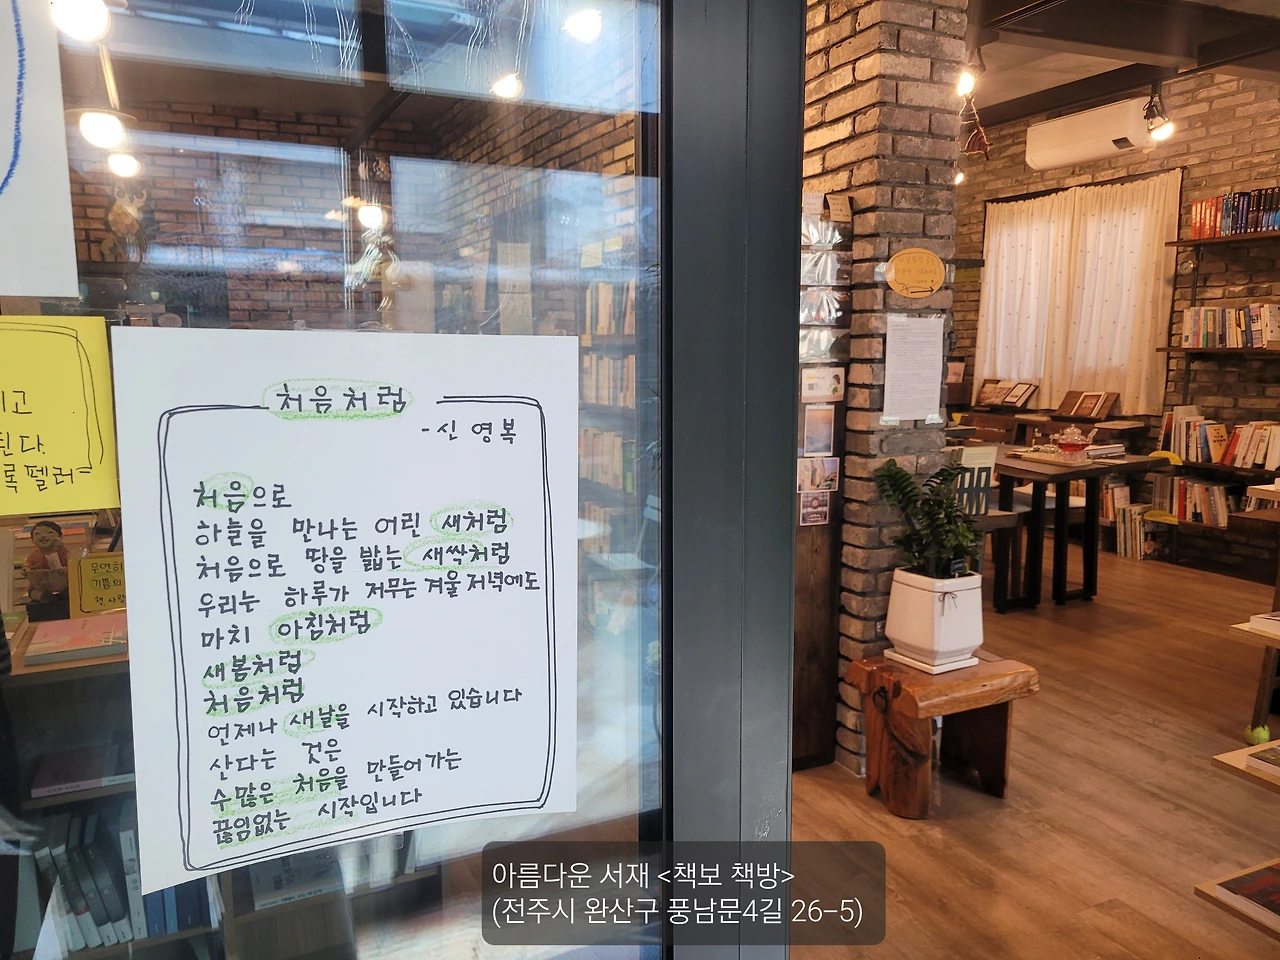 처음처럼
- 신영복
처음으로
하늘을 만나는 어린 새처럼
처음으로 땅을 밟는 새싹처럼
우리는 하루가 저무는 겨울 저녁에도
마치 아침처럼
새봄처럼
처음처럼
언제나 새날을 시작하고 있습니다
산다는 것은
수많은 처음을 만들어가는
끊임없는 시작입니다
고
된다.
록펠러-
우연히
기쁨의
책 사람
아름다운 서재 <책보 책방>
(전주시 완산구 풍남문4길 26-5)